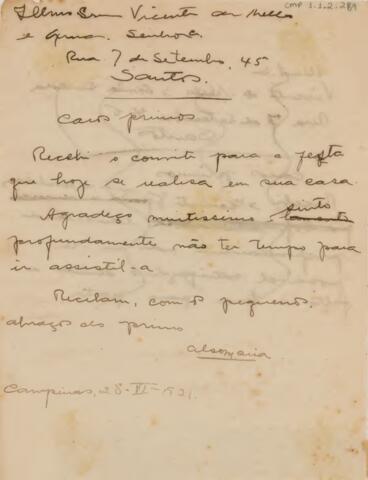 CMP 1.1.2.289
Illmo Snr Vicente de Mello
e Exma. Senhora.
Rua 7 de Setembro, 45
Santos.
Caros primos
Recebi o convite para a festa
que hoje se realisa em sua casa.
Agradeço muitissimo lamento sinto
profundamente não ter tempo para
ir assistil-a
Recebam, com os pequenos,
abraços do primo
Campinas, 28-VI-921.